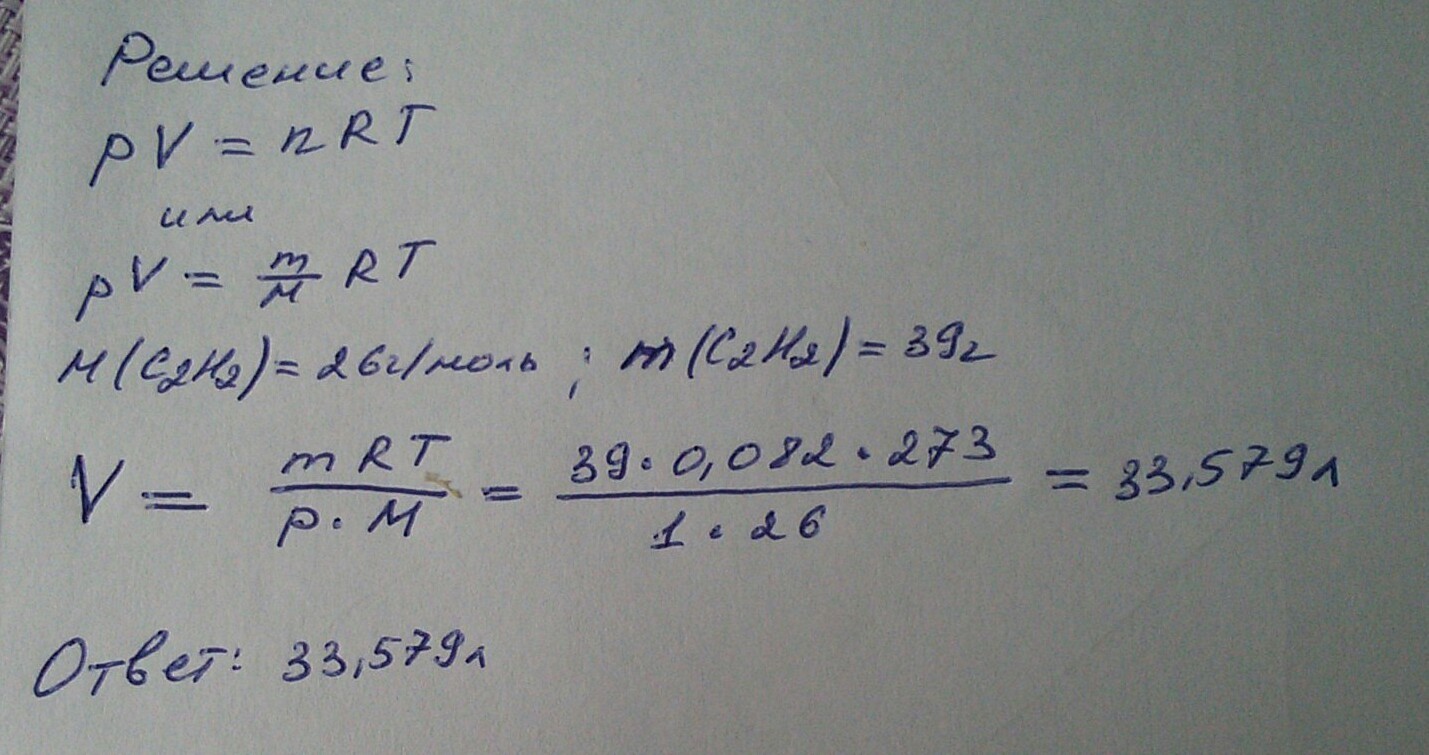 Решение:
pV = nRT
или
pV = m/M RT
M(C₂H₂) = 26г/моль ; m(C₂H₂) = 39г
V = mRT/p·M = 39·0,082·273/1·26 = 33,579л
Ответ: 33,579л